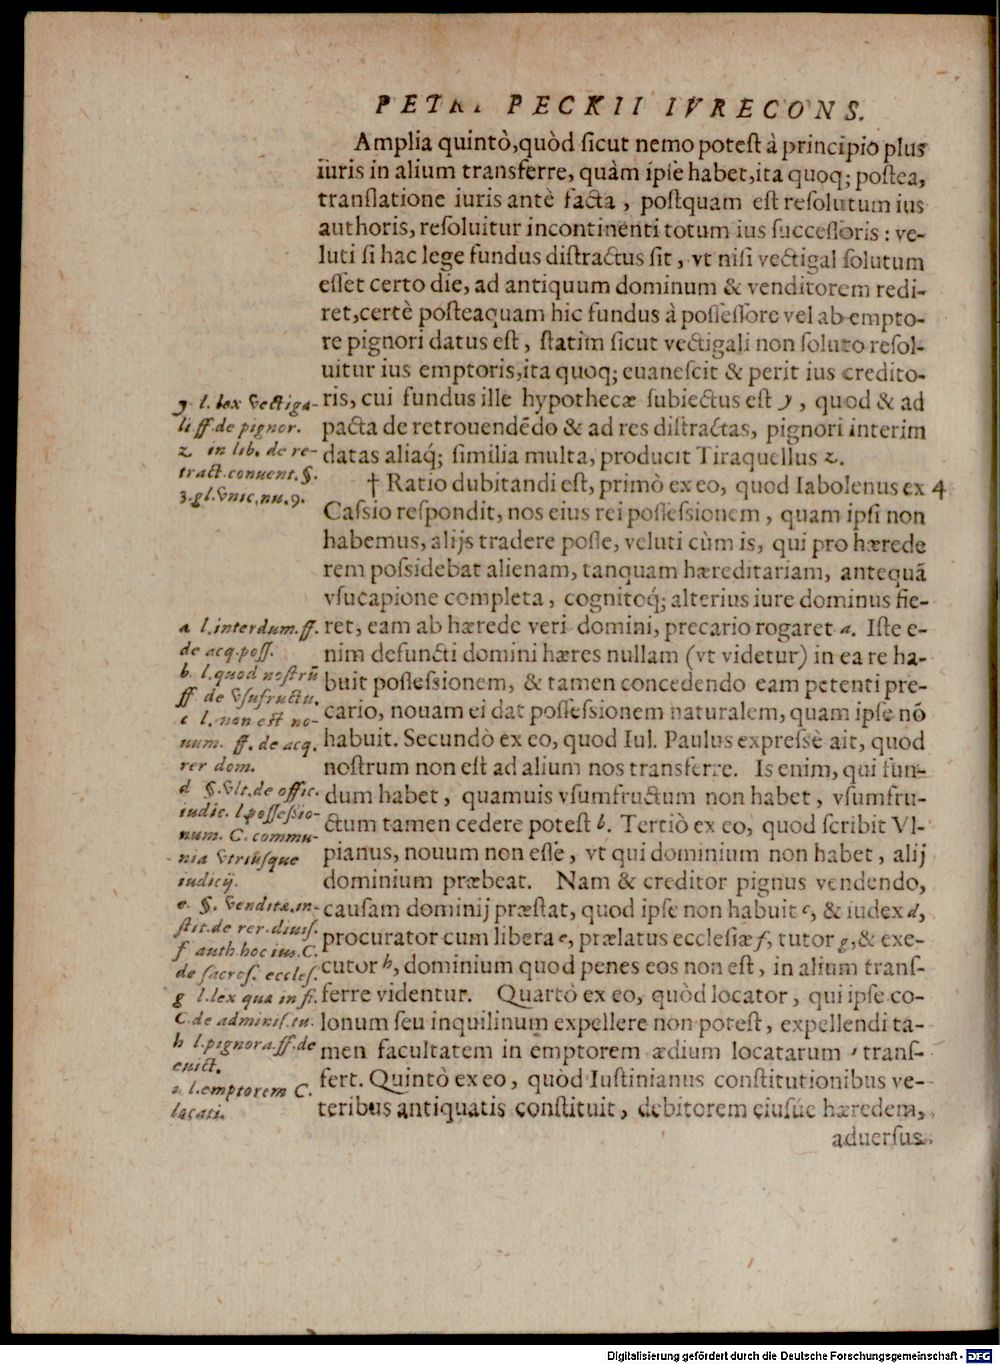 PETRI PECKII IVRECONS.
Amplia quintò, quòd ſicut nemo poteſt à principio plus
iuris in alium transferre, quàm ipſe habet, ita quoq; poſtea,
tranſlatione iuris antè facta, poſtquam eſt reſolutum ius
authoris, reſoluitur incontinenti totum ius ſucceſſoris: ve-
luti ſi hac lege fundus diſtractus ſit, vt niſi vectigal ſolutum
eſſet certo die, ad antiquum dominum & venditorem redi-
ret, certè poſteaquam hic fundus à poſſeſſore vel ab empto-
re pignori datus eſt, ſtatim ſicut vectigali non ſoluto reſol-
uitur ius emptoris, ita quoq; euaneſcit & perit ius credito-
ris, cui fundus ille hypothecæ ſubiectus eſt y, quod & ad
pacta de retrouendēdo & ad res diſtractas, pignori interim
datas aliaq́; ſimilia multa, producit Tiraquellus z.
† Ratio dubitandi eſt, primò ex eo, quod Iabolenus ex 4
Caſsio reſpondit, nos eius rei poſſeſsionem, quam ipſi non
habemus, alijs tradere poſſe, veluti cùm is, qui pro hærede
rem poſsidebat alienam, tanquam hæreditariam, antequā
vſucapione completa, cognitoq́; alterius iure dominus fie-
ret, eam ab hærede veri domini, precario rogaret a. Iſte e-
nim defuncti domini hæres nullam (vt videtur) in ea re ha-
buit poſſeſsionem, & tamen concedendo eam petenti pre-
cario, nouam ei dat poſſeſsionem naturalem, quam ipſe nō
habuit. Secundò ex eo, quod Iul. Paulus expreſsè ait, quod
noſtrum non eſt ad alium nos transferre. Is enim, qui fun-
dum habet, quamuis vſumfructum non habet, vſumfru-
ctum tamen cedere poteſt b. Tertiò ex eo, quod ſcribit Vl-
pianus, nouum non eſſe, vt qui dominium non habet, alij
dominium præbeat. Nam & creditor pignus vendendo,
cauſam dominij præſtat, quod ipſe non habuit c, & iudex d,
procurator cum libera e, prælatus eccleſiæ f, tutor g, & exe-
cutor h, dominium quod penes eos non eſt, in alium tranſ-
ferre videntur. Quartò ex eo, quòd locator, qui ipſe co-
lonum ſeu inquilinum expellere non poteſt, expellendi ta-
men facultatem in emptorem ædium locatarum i tranſ-
fert. Quintò ex eo, quòd Iuſtinianus conſtitutionibus ve-
teribus antiquatis conſtituit, debitorem eiuſúe hæredem,
aduerſus
y l. lex vectiga-
li ff. de pignor.
z in lib. de re-
tract. conuent. §.
3. gl. vnic. nu. 9.
a l. interdum. ff.
de acq. poſſ.
b l. quod noſtrū
ff. de vſufructu.
c l. non eſt no-
uum. ff. de acq.
rer dom.
d §. vlt. de offic.
iudic. l. poſſeſsio-
num. C. commu-
nia vtriuſque
iudicij.
e §. venditæ. in-
ſtit. de rer. diuiſ.
f auth. hoc ius. C.
de ſacroſ. eccleſ.
g l. lex quæ in fi.
C. de adminiſ. tu.
h l. pignora. ff. de
euict.
i l. emptorem C.
locati.
Digitalisierung gefördert durch die Deutsche Forschungsgemeinschaft - DFG